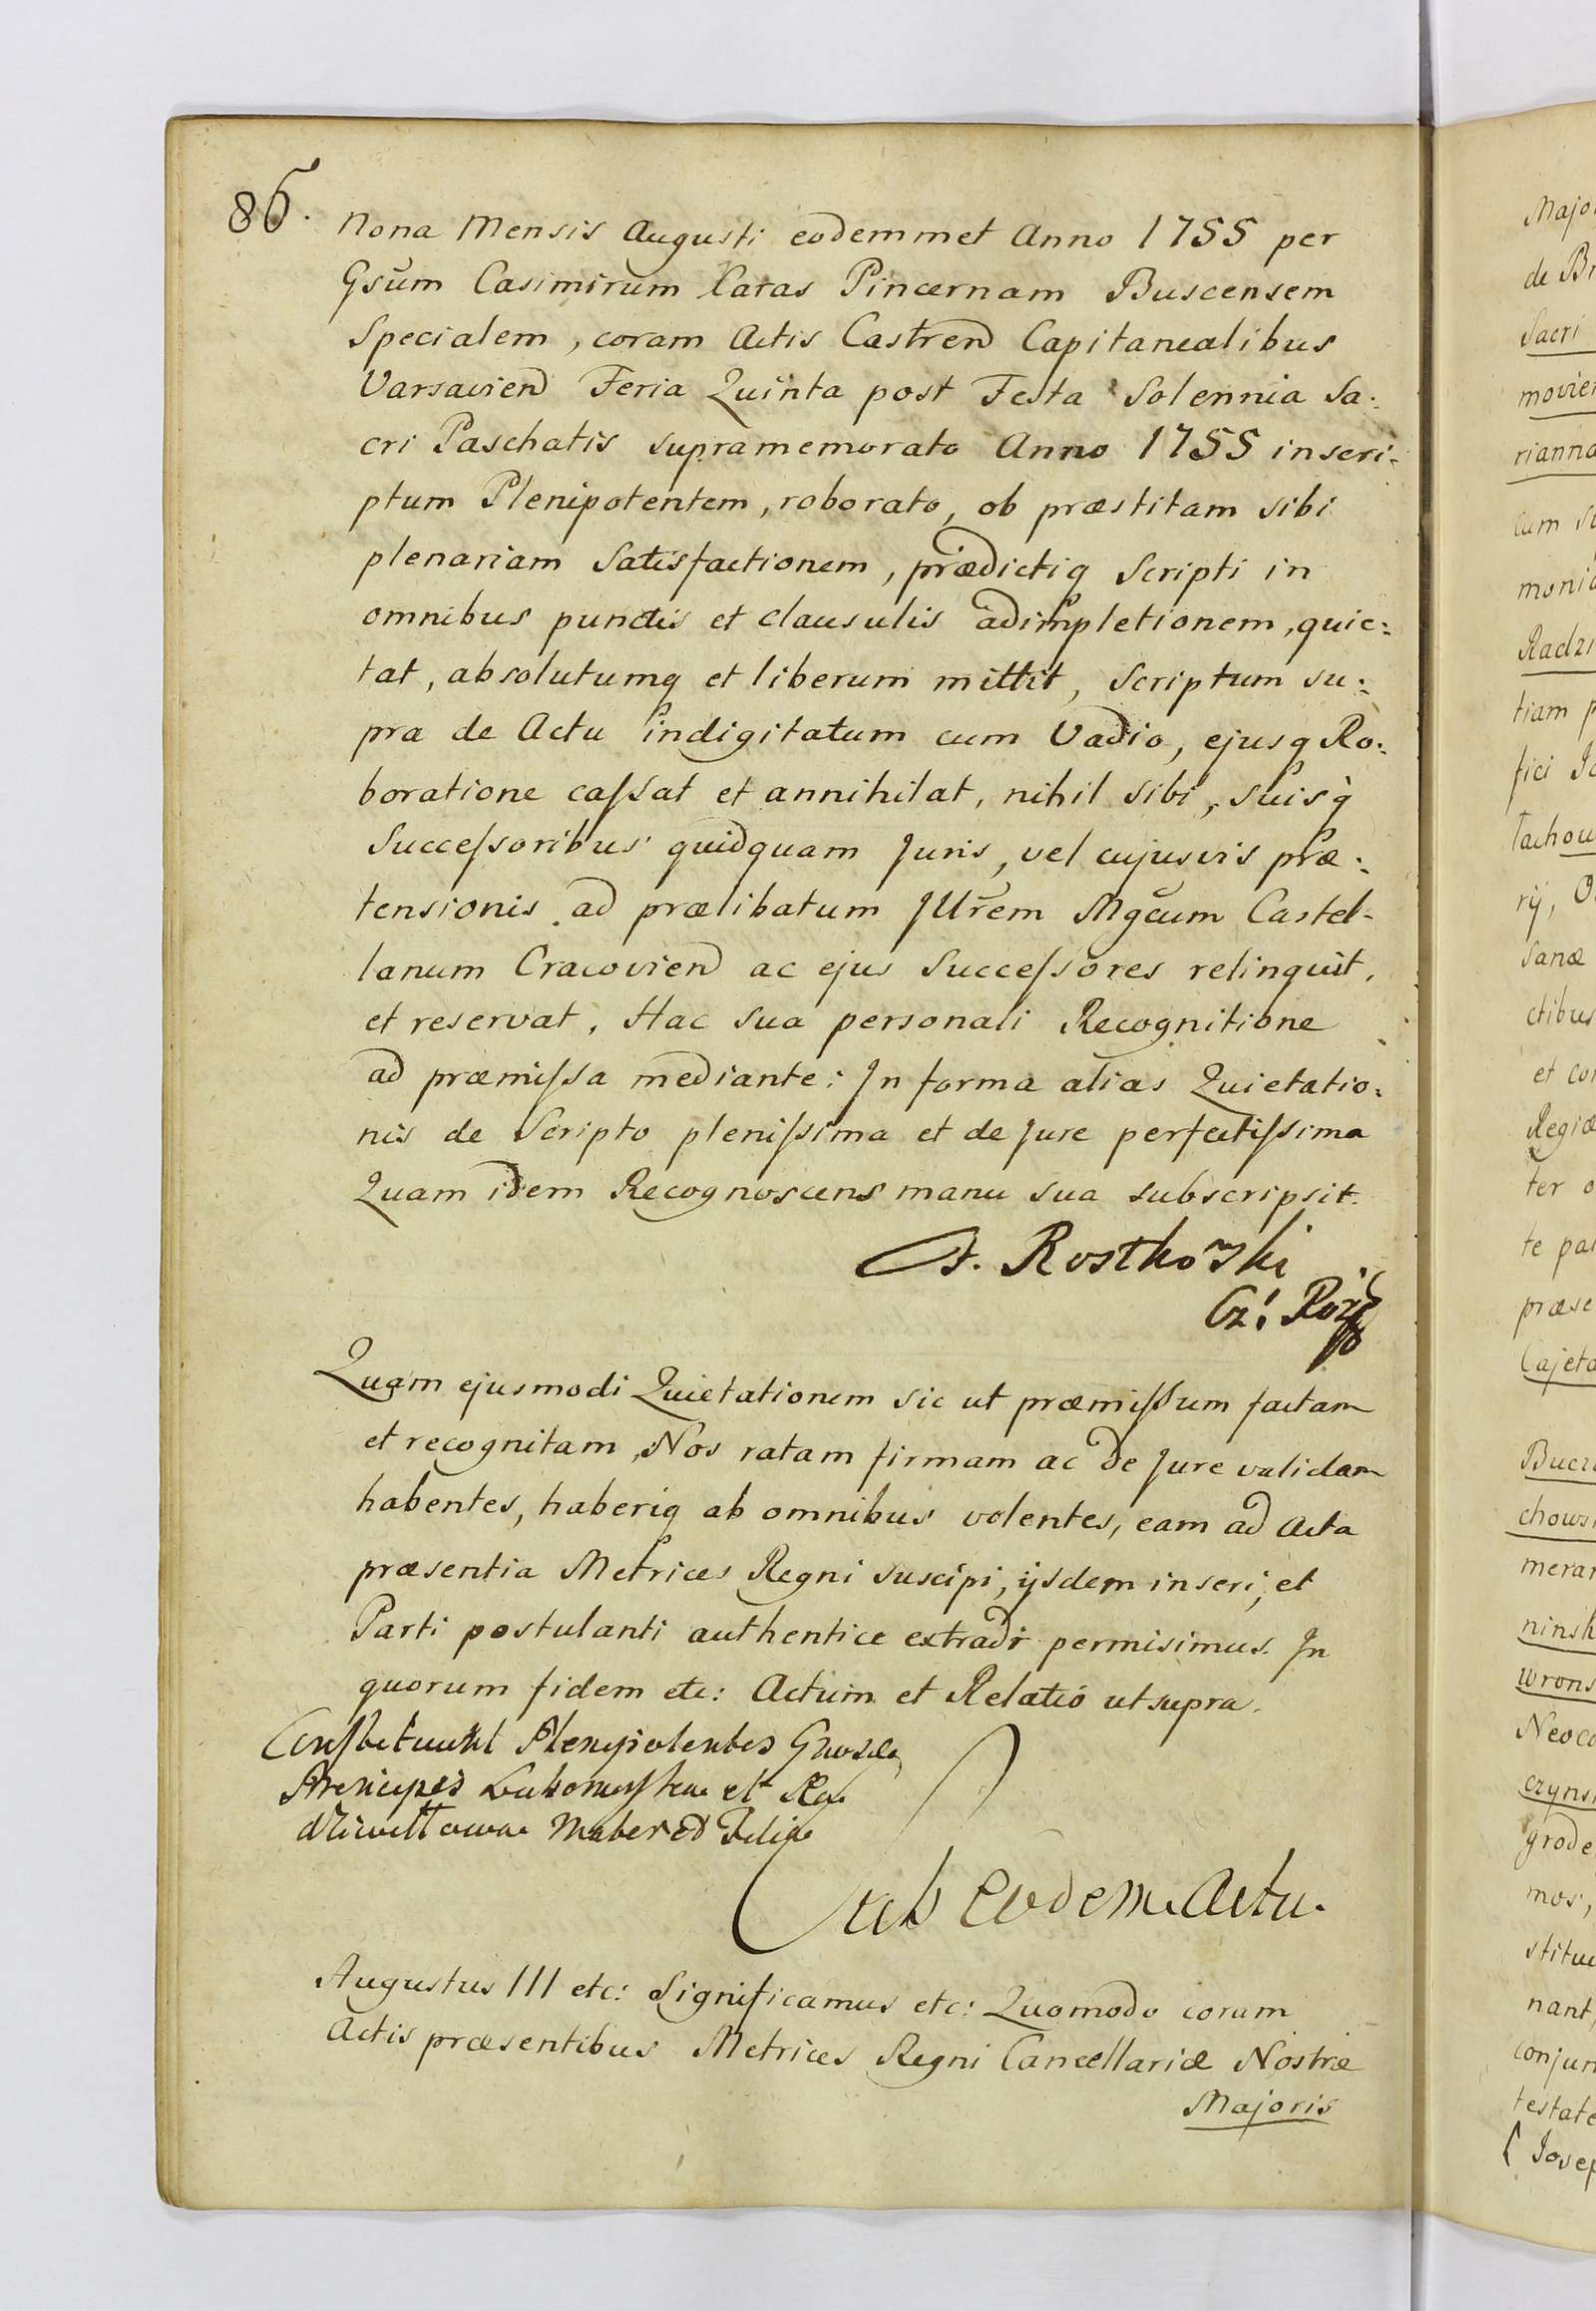 86.
Nona Mensis Augusti eodemmet Anno 1755 per
Gsum Casimirum Karas Pincernam Buscensem
Specialem, coram Actis Castrend Capitanealibus
Varsaviend Feria Quinta post Festa Solennia Sa:
cri Paschatis supramemorato Anno 1755 inscri:
ptum Plenipotentem, roborato, ob præstitam sibi
plenariam Satisfactionem, prædictiq Scripti in
omnibus punctis et clausulis adimpletionem, quie:
tat, absolutumq et liberum mittit, Scriptum su:
pra de Actu indigitatum cum Vadio, ejusq Ro:
boratione caſsat et annihilat, nihil sibi, suisq
Succeſsoribus quidquam Juris, vel cujusvis præ:
tensionis ad prælibatum Jllrem Mgcum Castel-
lanum Cracoviend ac ejus Succeſsores relinquit,
et reservat, Hac sua personali Recognitione
ad præmiſsa mediante: Jn forma alias Quietatio:
nis de Scripto pleniſsima et de Jure perfectiſsima
Quam idem Recognoscens manu sua subscripsit.
A. Rostkowski
Cz:
Quam ejusmodi Quietationem sic ut præmiſsum factam
et recognitam, Nos ratam firmam ac de Jure validam
habentes, haberiq ab omnibus volentes, eam ad Acta
præsentia Metrices Regni suscipi, ijsdem inseri, et
Parti postulanti authentice extradi permisimus. Jn
quorum fidem etc: Actum et Relatio ut supra.
Constituunt Plenipotentes Gnosæ
Principes Lubomirska et Ra
dziwiłłowa Mater et Filia
Eod eodem Actu.
Augustus III etc: Significamus etc: Quomodo coram
Actis præsentibus Metrices Regni Cancellariæ Nostræ
Majoris
Majo
de Br
Sacri
movien
rianna
cum
moniа
Radzi
tiam p
fici
Tachow
rij, O
sanæ
ctibus
et con
Regiæ
ter o
te pa
præse
Cajeta
Bucz
chows
meran
ninsk
wrons
Neoco
czyns
grode
mos,
stitu
nant,
conjun
testate
Josep